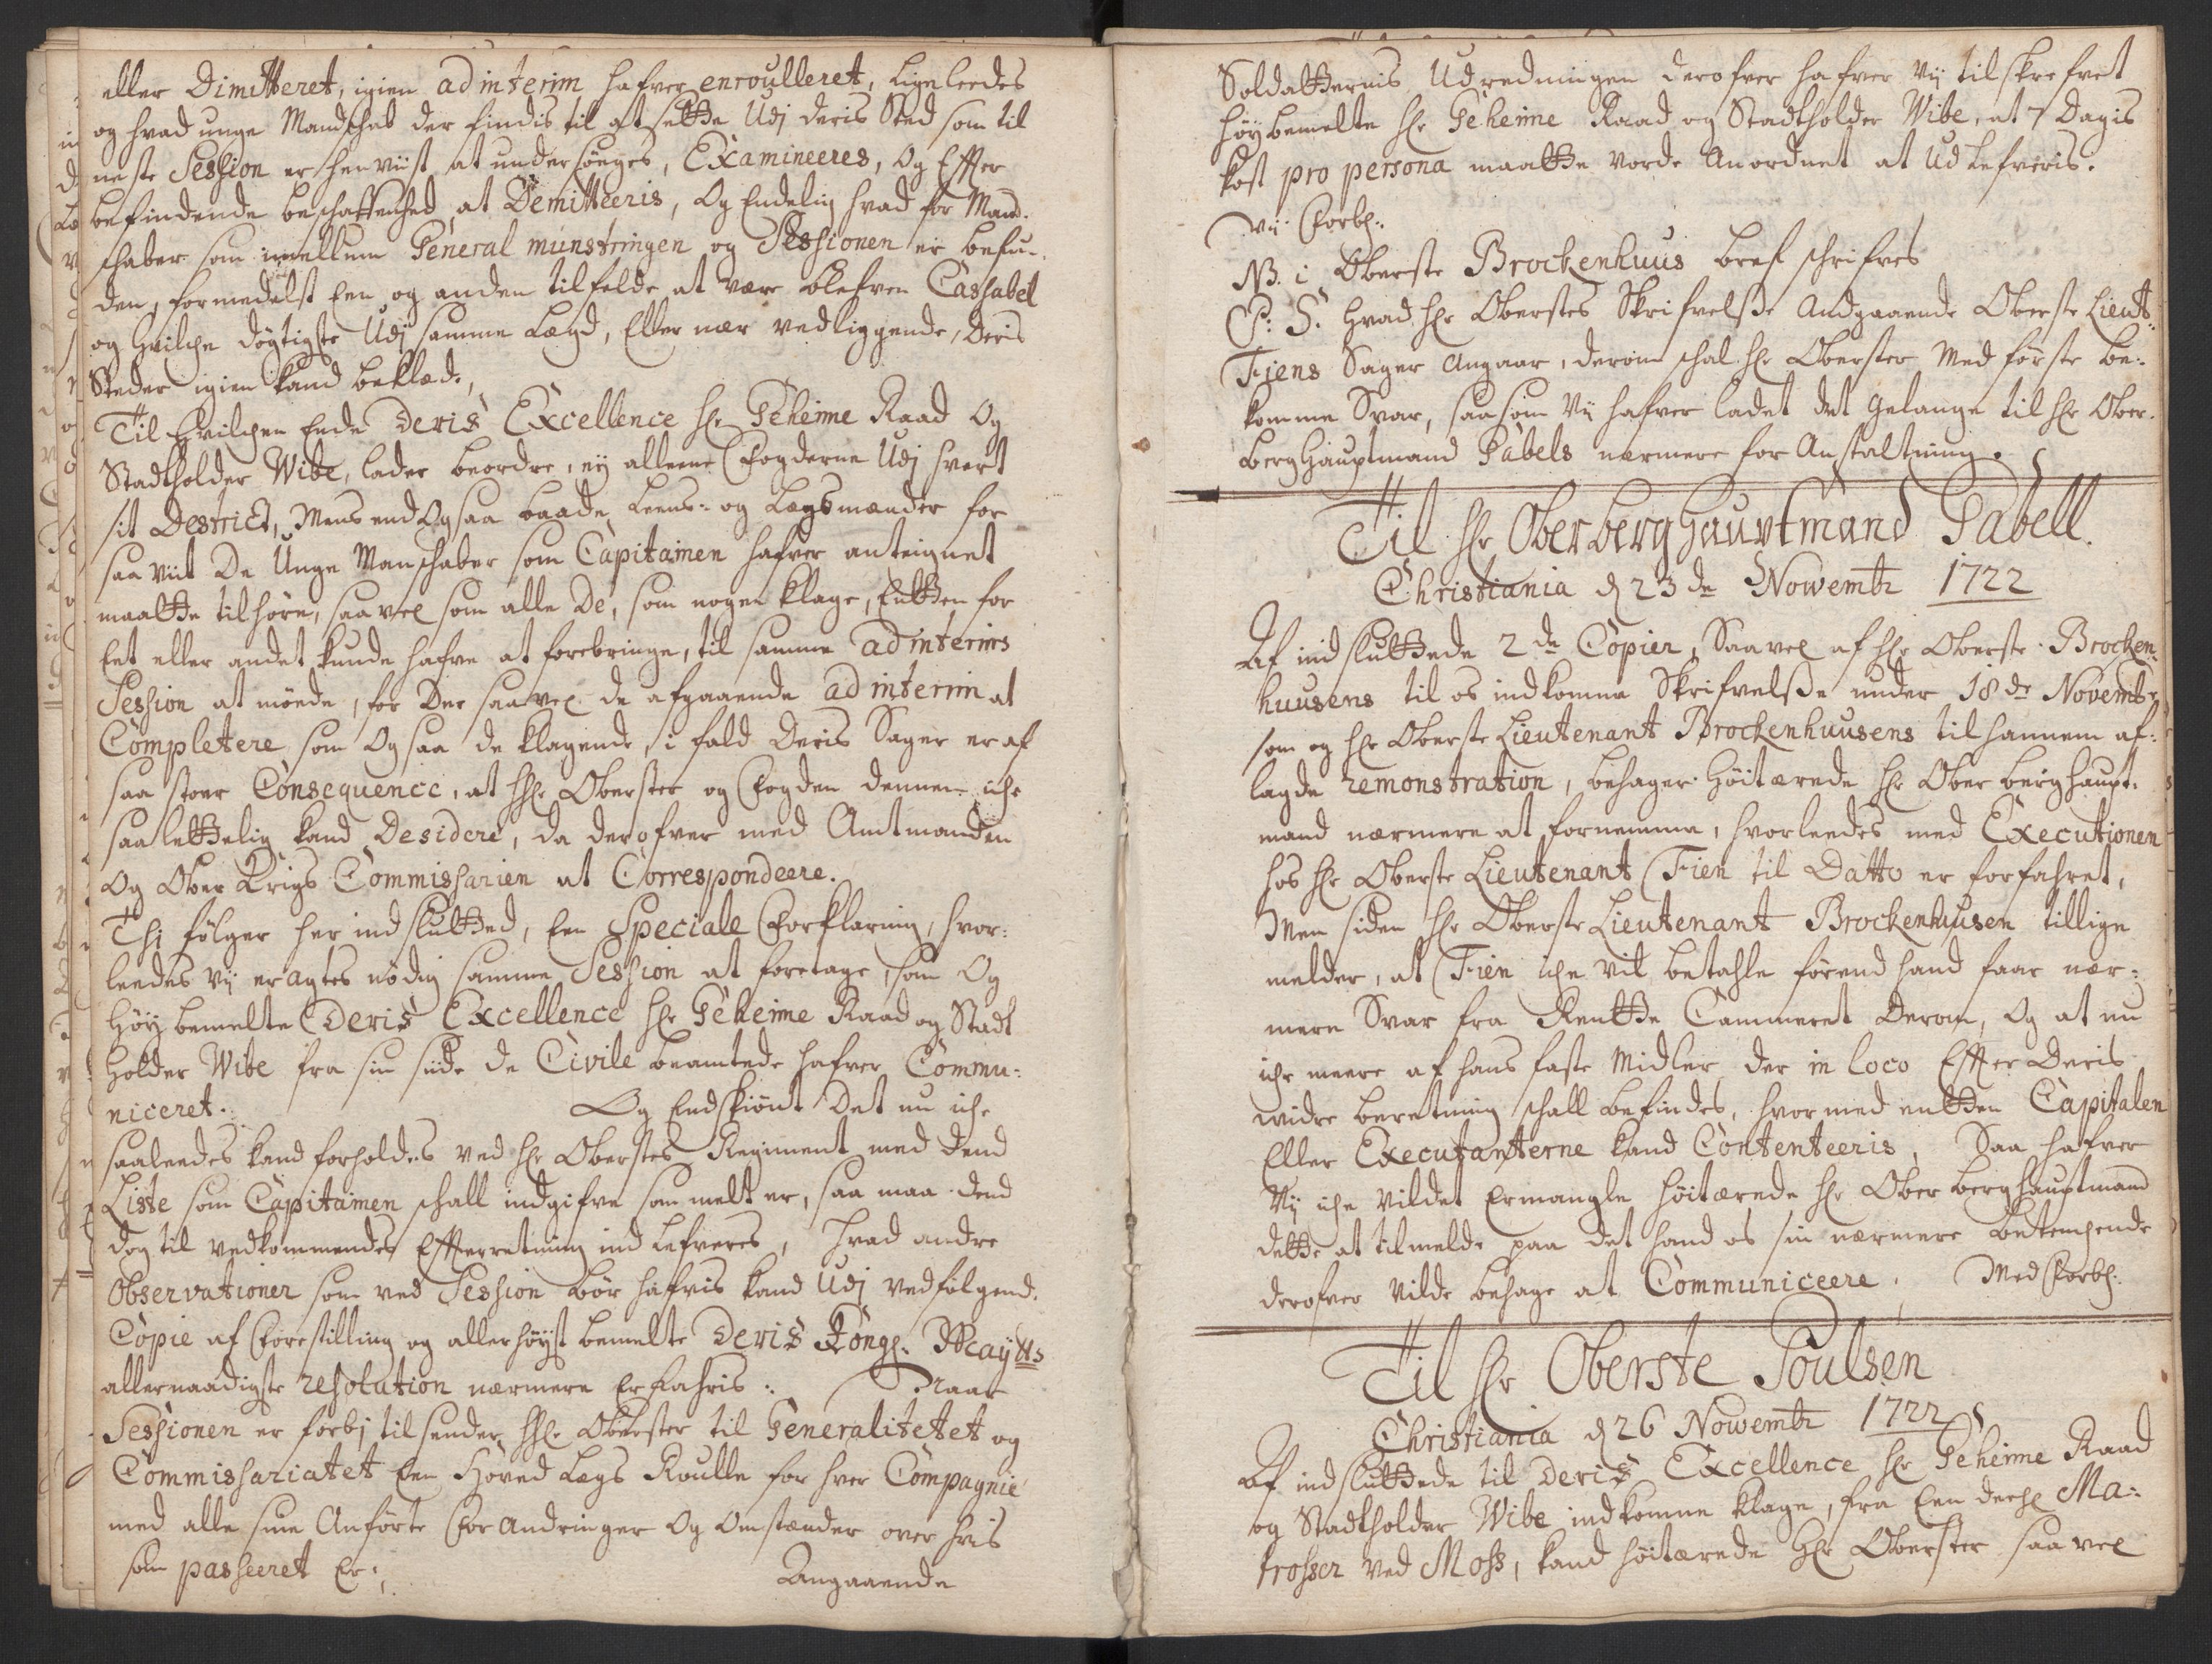 eller Dimitteret, igien ad interim hafver enroulleret, ligeleedes
og hvad unge Mandskab der findis til at sette Udj deris Sted som til
neste Session er henviist at undersøuges, Examineeres, og Effter
befindende beschaffenhed at Demitteeris, Og Endelig hvad for Mand-
schaber som imellem General munstringen og Sessionen er befun-
den, formedelst Een og anden tilfelde at være blefven Cassabel
og hvilche døgtigste Udj samme Lægd, Eller nær vedliggende, Deris
Steder igien kand beklæd:,
Til hvilchen Ende Deris Excellence Hr Geheime Raad Og
Stadtholder Wibe, lader beordre, ey alleene Fogderne Udj hvert
sit District, Mens end Ogsaa baade Leens- og Lægsmænder for
saa viit De Unge Manschaber som Capitainen hafver anteignet
maatte tilhøre, saavel som alle De, som nogen klage, Entten for
Eet eller andet kunde hafve at forebringe, til samme ad interims
Session at møede, for Der saavel de afgaaende ad interim at
Completere som Ogsaa de klagende, i fald Deris Sager er af
saa stoer Consequence, at Hr Oberster og Fogden dennem iche
saa lettelig kand Desidere, da derofver med Amtmanden
Og Ober Krigs Commissarien at Correspondeere.
Thj følger her indslutted, Een Speciale Forklaring, hvor-
leedes Vj eragtes nødig samme Session at foretage, som Og
Høybemelte Deris Excellence Hr Geheime Raad og Stadt
holder Wibe fra sin siide De Civile beamtede hafver Commu-
niceret. Og Endskiønt Det nu iche
saaleedes kand forholdes ved Hr Oberstes Regiment med Dend
Liste som Capitainen schall indgifve som melt er, saa maa Dend
dog til vedkommendes Effterretning ind Lefveres, Hvad andre
Observationer som ved Session bør hafvis kand Udj vedfølgend:
Copie af Forestilling og allerhøyst bemelte Deris Kongl. Mayts
allernaadigste resolution nærmere Erfahris: Naar
Sessionen er forbj tilsender Hr Oberster til Generalitetet og
Commissariatet Een Hoved Lægs Roulle for hver Compagnie
med alle sine Anførte Forandringer Og Omstænder over hvis
som passeret Er:,
Angaaende
Soldatternis Udredningen derofver hafver Vij tilskrefvet
Høybemelte Hr Geheime Raad og Stadtholder Wibe, at 7 Dagis
kost pro persona maatte vorde Anordnet at Udlefveris.
Vij Forbl:
NB. i Oberste Brockenhuus bref schrifves
P: S. Hvad Hr Oberstes Skrifvelsse Andgaaende Oberste Lieut:
Fiens Sager Angaar, derom schal Hr Oberster Med første be-
komme Svar, saasom Vij hafver ladet det gelange til Hr Ober-
berghauptmand Gabels nærmere for Anstaltning.
Til Hr Oberberghauptmand Gabell.
Christiania d 23de Nowembr 1722
Af indsluttede 2de Copier, Saavel af Hr Oberste Brocken-
huusens til os indkomne Skrifvelsse under 18de Novembr
som og Hr Oberste Lieutenant Brockenhuusens til hannem af-
lagde remonstration, behager Høitærede Hr Ober berghaupt-
mand nærmere at fornemme, hvorleedes med Executionen
hos Hr Oberste Lieutenant Fien til Datto er forfahret,
Men siden Hr Oberste Lieutenant Brockenhuusen tillige
melder, at Fien iche vil betahle førend hand faar nær-
mere Svar fra Rentte Cammeret Derom, Og at nu
iche meere af hans faste Midler der in loco Effter Deris
widre beretning schall befindes, hvormed entten Capitalen
Eller Executanterne kand Contenteeris, Saa hafver
Vij iche Vildet Ermangle Høitærede Hr Ober berghauptmand
dette at tilmelde paa det hand os sin nærmere betenchende
derofver Vilde behage at Communiceere. Med Forbl:
Til Hr Oberste Poulsen
Christiania d 26 Nowembr 1722
Af indsluttede til Deris Excellence Hr Geheime Raad
og Stadtholder Wibe indkomne klage, fra Een deehl Ma-
trosser ved Moss, kand Høitærede Hr Oberster saavel